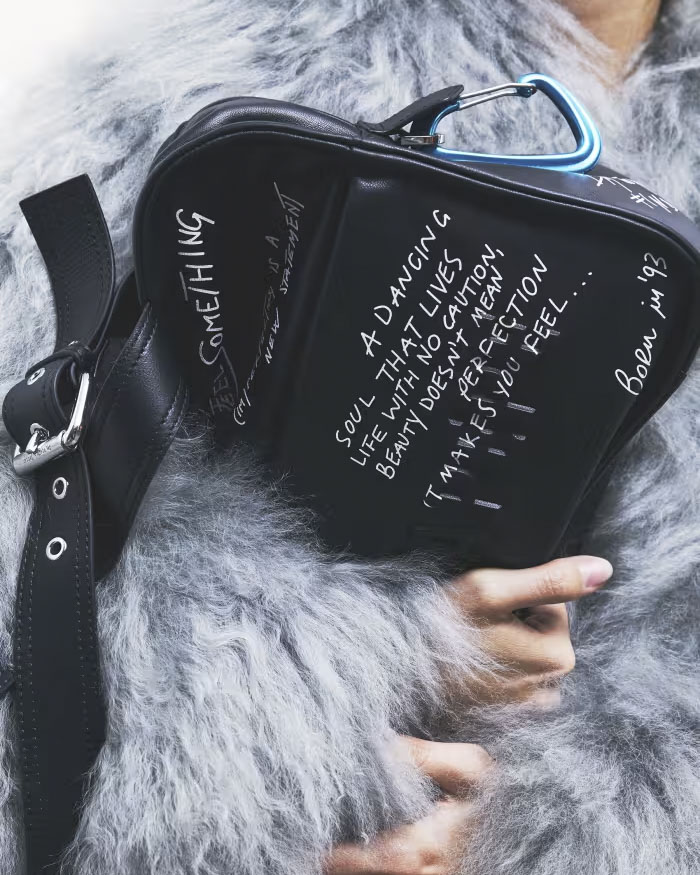 FEEL SOMETHING
(im)perfection IS A
NEW STATEMENT
A DANCING
SOUL THAT LIVES
LIFE WITH NO CAUTION,
BEAUTY DOESN'T MEAN
PERFECTION
IT MAKES YOU FEEL....
Born in '93